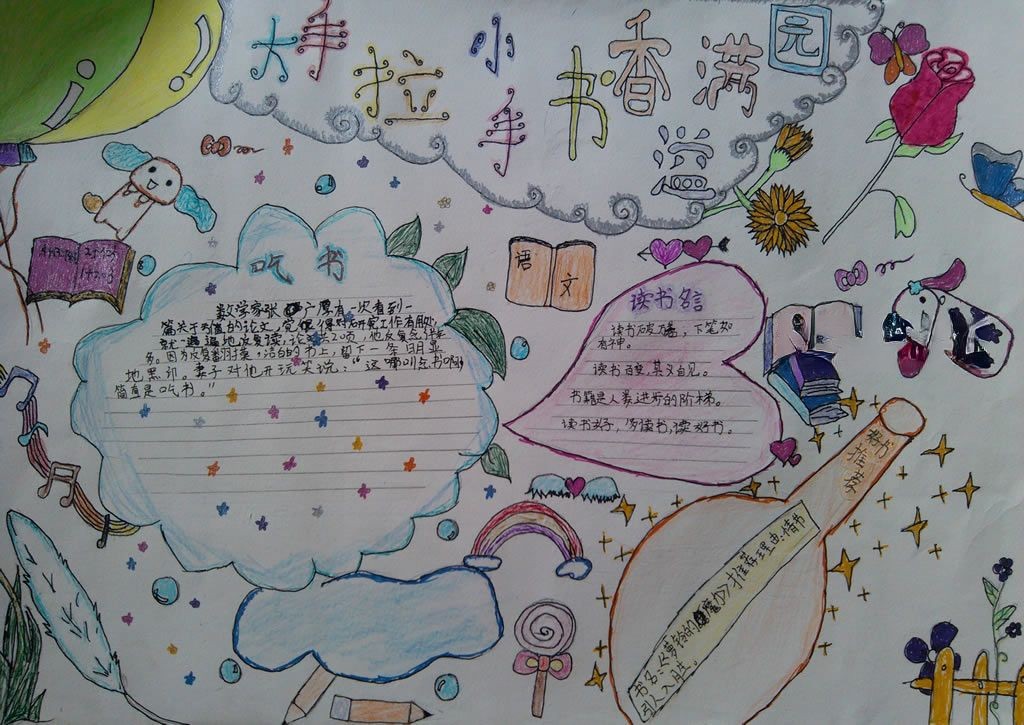 大手拉小手书香满溢园
吃书
数学家张广厚有一次看到一
篇关于亏值的论文,觉得对研究工作有用处,
就一遍遍地反复读,论文共20页,他反复念诵
多。因为反复翻摸,洁白的书上,留下一条明显
地黑印。妻子对他开玩笑说:"这哪叫念书啊,
简直是吃书。"
语
文
读书名言
读书破万卷,下笔如
有神。
读书百变,其义自见。
书籍是人类进步的阶梯。
读书好,多读书,读好书。
好书
推荐
推荐理由:情节
引人入胜。